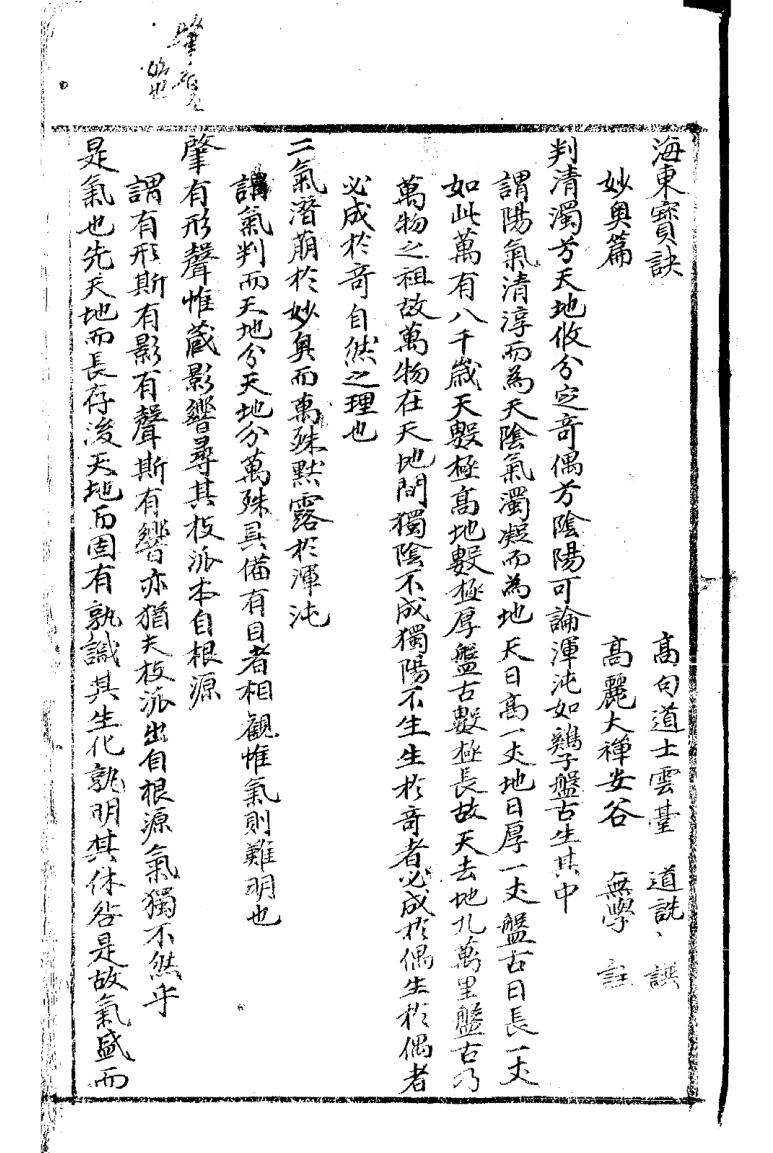 海東寶訣　高句道士雲䑓　道詵　譔
妙奧篇　高麗大禅安谷　無學　註
判清濁分天地攸分定奇偶分陰陽可論渾沌如鷄子盤古生其中
謂陽氣清淳而為天陰氣濁凝而為地天日高一丈地日厚一丈盤古日長一丈
如此萬有八千歲天數極高地數極厚盤古數極長故天去地九萬里盤古乃
萬物之祖故萬物在天地間獨陰不成獨陽不生生於奇者必成於偶生於偶者
必成於奇自然之理也
二氣潛萠於妙奧而萬殊默露於渾沌
謂氣判而天地分天地分萬殊具備有目者相觀惟氣則難明也
肇有形聲惟蔵影響尋其枝派本自根源
謂有形斯有影有聲斯有響亦猶夫枝派出自根源氣獨不然乎
是氣也先天地而長存後天地而固有孰識其生化孰明其休咎是故氣盛而